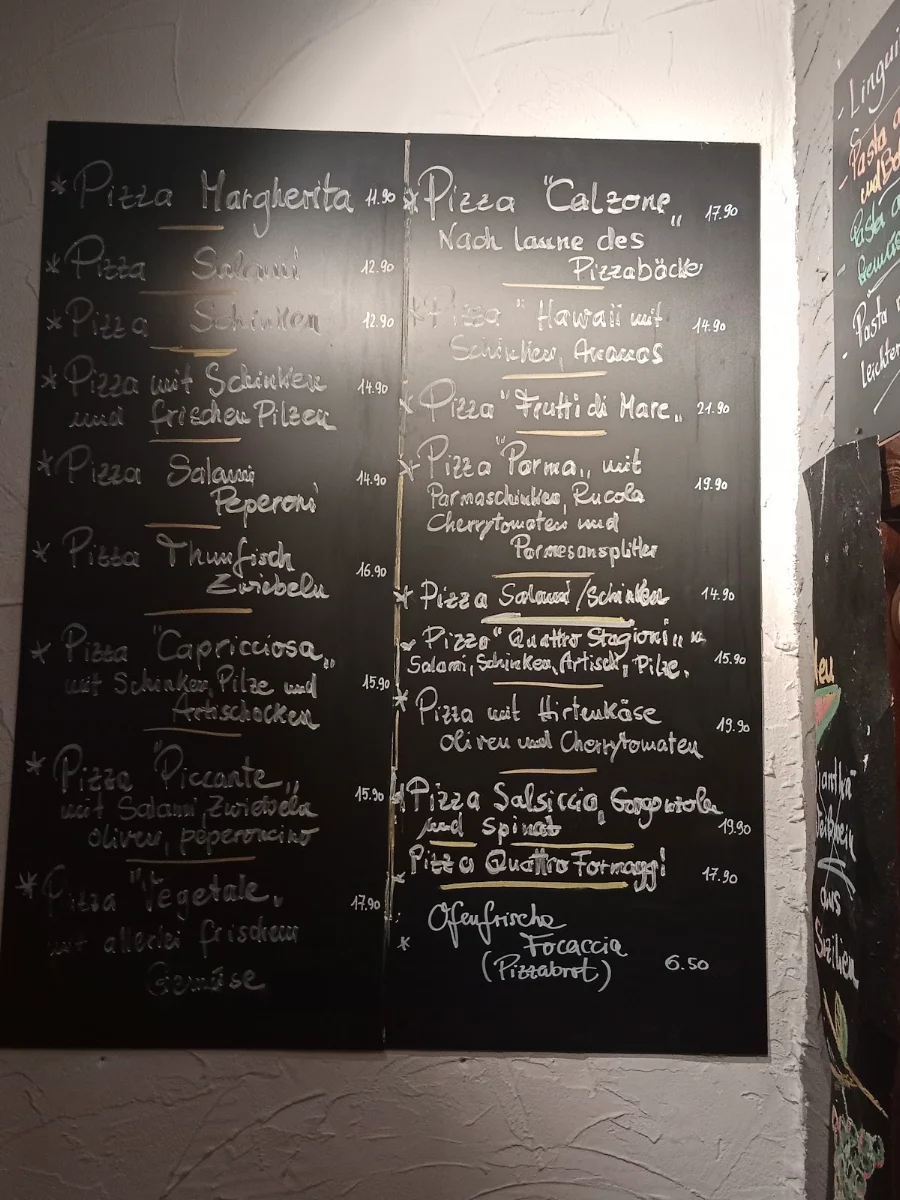 * Pizza Margherita 11.90
* Pizza Salami 12.90
* Pizza Schinken 12.90
* Pizza mit Schinken 14.90
und frischen Pilzen
* Pizza Salami 14.90
Peperoni
* Pizza Thunfisch 16.90
Zwiebeln
* Pizza "Capricciosa" 15.90
mit Schinken, Pilze und
Artischocken
* Pizza "Piccante" 15.90
mit Salami, Zwiebeln
Oliven, peperoncino
* Pizza "Vegetale" 17.90
mit allerlei frischem
Gemüse
* Pizza "Calzone" 17.90
Nach Laune des
Pizzabäcke
* Pizza "Hawaii mit 14.90
Schinken, Ananas
* Pizza "Frutti di Mare" 21.90
* Pizza "Parma" mit 19.90
Parmaschinken, Rucola
Cherrytomaten und
Parmesansplitter
* Pizza Salami/Schinken 14.90
* Pizza "Quattro Stagioni" 15.90
Salami, Schinken, Artisch, Pilze.
* Pizza mit Hirtenkäse 19.90
Oliven und Cherrytomaten
* Pizza Salsiccia, Gorgonzola 19.90
und Spinat
* Pizza Quattro Formaggi 17.90
* Ofenfrische
Focaccia 6.50
(Pizzabrot)
- Lingui
- Pasta
und
Pasta
- Pasta
Leichter
Neu
aus
Sizilien